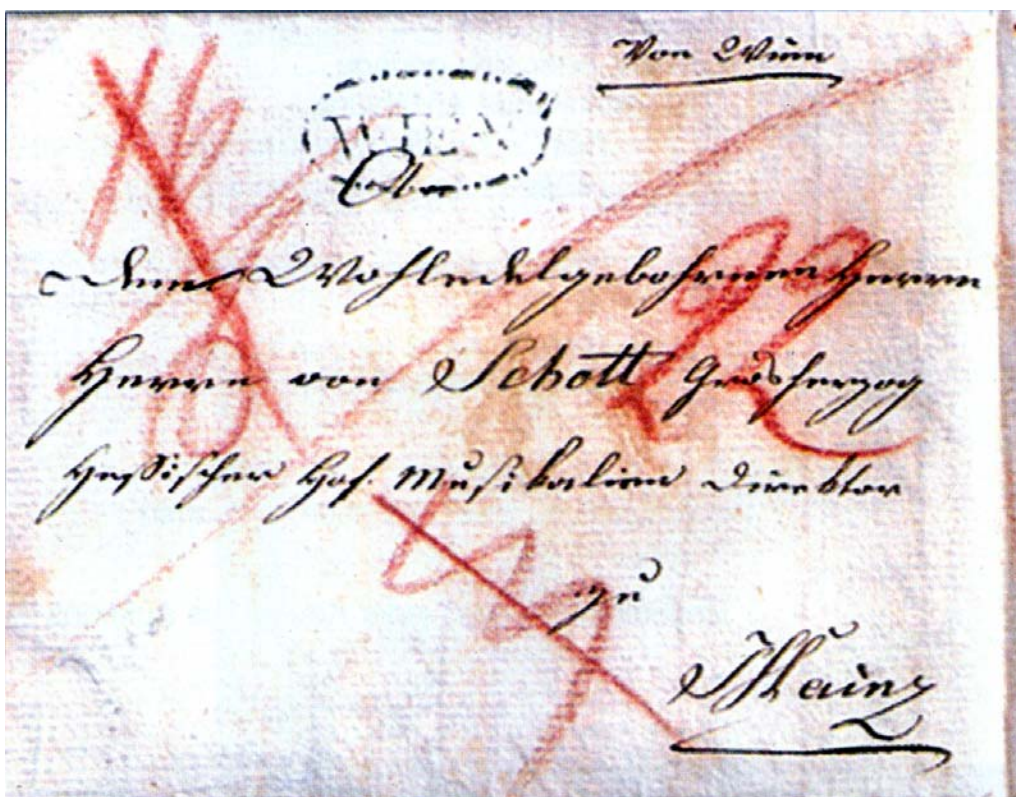 Von Wien
WIEN
An
Den Wohledelgebohrnen Herrn
Herrn von Schott Grosherzog
Hessischer Hof. Musikalien Direktor
zu
Mainz